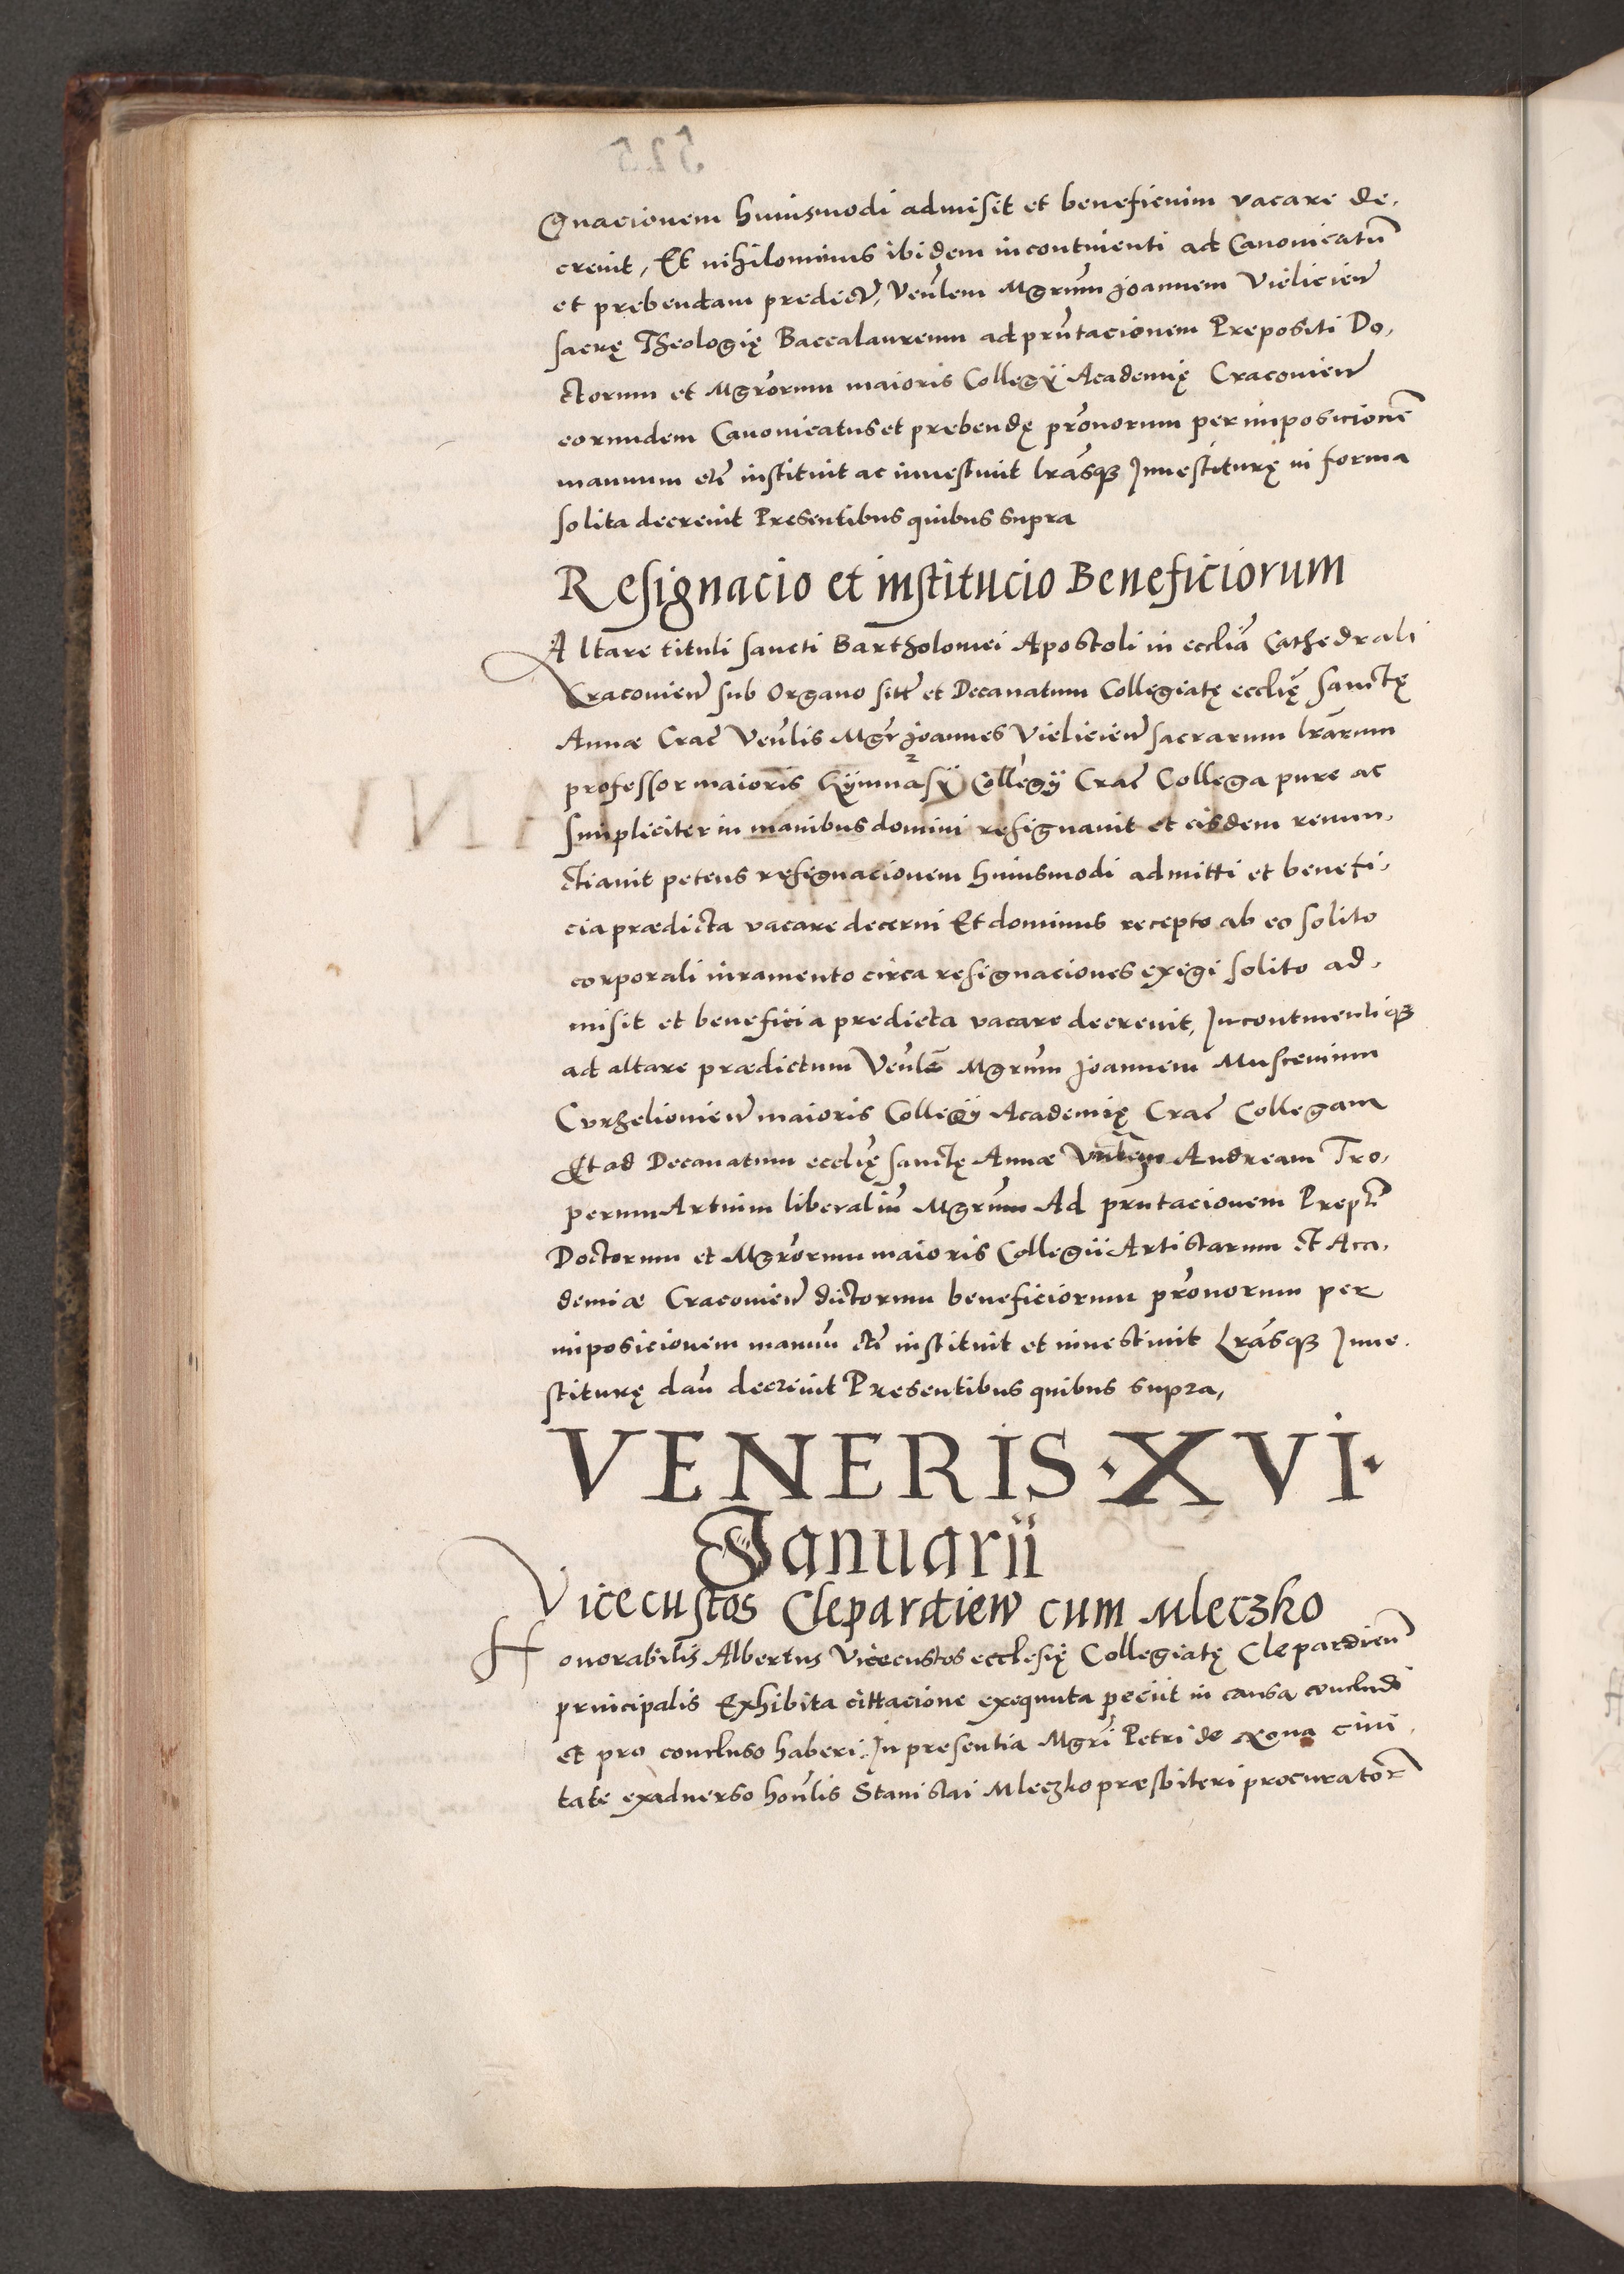 gnacionem huiusmodi admisit et beneficium vacare de,
crevit, Et nihilominus ibidem incontinenti ad Canonicatũ
et prebendam predictũ, Venlem Mgrum Joannem Vielicien̄
sacrę Theologię Baccalaureum ad pñtacionem Prepositi Do,
ctorum et Mgrorum maioris Collegÿ Academię Cracovien̄
eorundem Canonicatus et prebendę pronorum per imposicionẽ
manuum etc̃ instituit ac investivit lrãsq₃ Investiturę in forma
solita decrevit Presentibus quibus supra
Resignacio et institucio Beneficiorum
Altare tituli sancti Bartholomei Apostoli in ecclia Cathedrali
Cracovien̄ sub Organo sitũ et Decanatum Collegiatę ecclię Sanctę
Annæ Crac̃ Venlis Mgr Joannes Vielicien̄ sacrarum lrãrum
professor maioris Gÿmnasÿ Collegÿ Crac̃ Collega pure ac
simpliciter in manibus domini resignavit et eisdem renun,
ctiavit petens resignacionem huiusmodi admitti et benefi,
cia prædicta vacare decerni Et dominus recepto ab eo solito
corporali iuramento circa resignaciones exigi solito ad,
misit et beneficia predicta vacare decrevit, Incontinentiq₃
ad altare prædictum Venlẽ Mgrum Joannem Muscenium
Curzelionien̄ maioris Collegÿ Academię Crac̃ Collegam
Et ad Decanatum ecclię sanctę Annæ Andream Tro,
perum Artium liberaliũ Mgrum Ad pñtacionem Prepti
Doctorum et Mgrorum maioris Collegii Artistarum et Aca,
demiæ Cracovien̄ dictorum beneficiorum pronorum per
imposicionem manuũ etc̃ instituit et investivit Lrãsq₃ Inve,
stiturę dañ decrevit Presentibus quibus supra,
VENERIS·XVI·
Januarii
Vicecustos Clepardien̄ cum Mleczko
Honorabilis Albertus Vicecustos ecclesię Collegiatę Clepardien̄
principalis Exhibita cittacione exequuta peciit in causa concludi
et pro concluso haberi, In presentia Mgri Petri de Nona civi,
tate exadverso honlis Stanislai Mleczko præsbiteri procuratoř